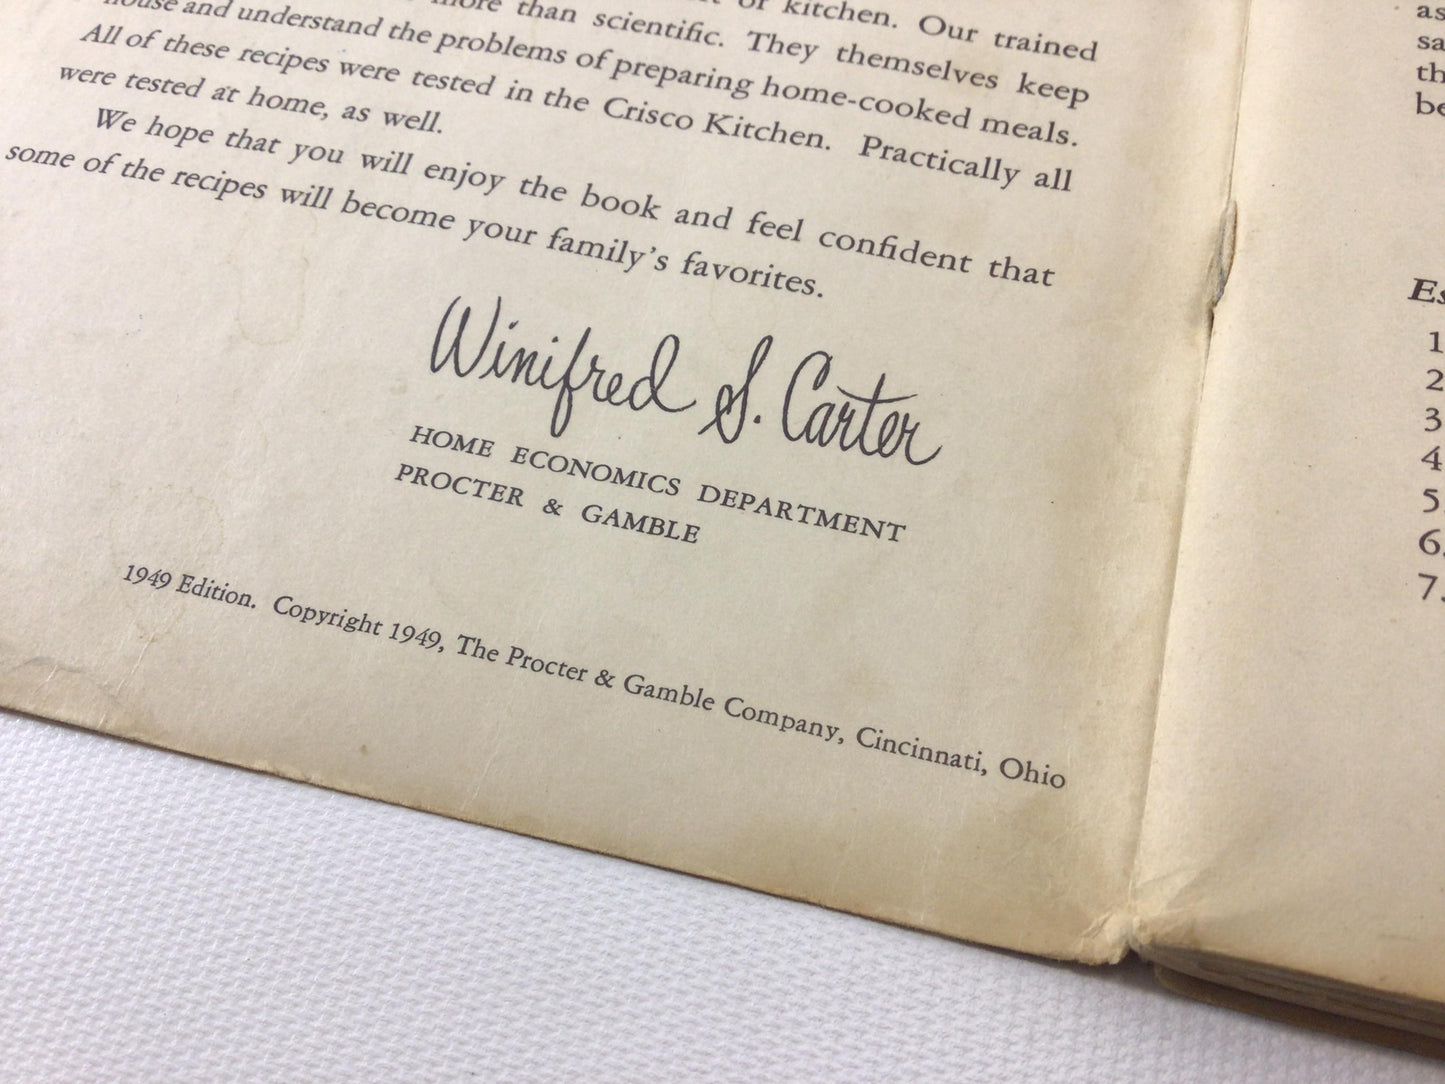 or kitchen. Our trained
more than scientific. They themselves keep
house and understand the problems of preparing home-cooked meals.
All of these recipes were tested in the Crisco Kitchen. Practically all
were tested at home, as well.
We hope that you will enjoy the book and feel confident that
some of the recipes will become your family's favorites.
Winifred S. Carter
HOME ECONOMICS DEPARTMENT
PROCTER & GAMBLE
1949 Edition. Copyright 1949, The Procter & Gamble Company, Cincinnati, Ohio
1
2
3
4
5
6.
7.